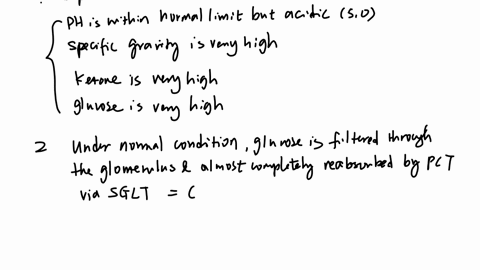 PH is within normal limit but acidic (5.0)
specific gravity is very high
ketone is very high
glucose is very high
2 Under normal condition, glucose is filtered through
the glomerulus & almost completely reabsorbed by PCT
via SGLT = (